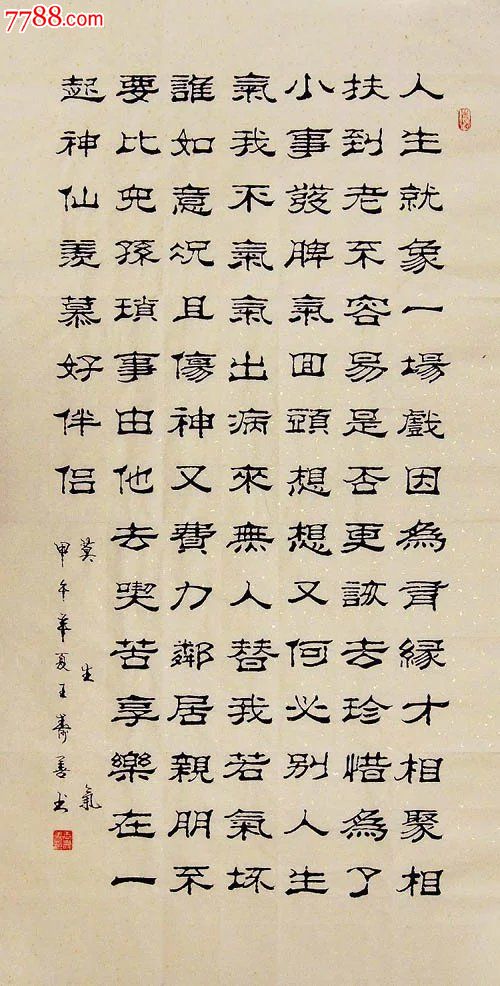 7788.com
人生就象一場戲因為有緣才相聚相
扶到老不容易是否更該去珍惜為了
小事發脾氣回頭想想又何必別人生
氣我不氣氣出病來無人替我若氣坏
誰如意況且傷神又費力鄰居親朋不
要比兒孫瑣事由他去喫苦享樂在一
起神仙羡慕好伴侶
莫生氣
甲午華夏王壽善书